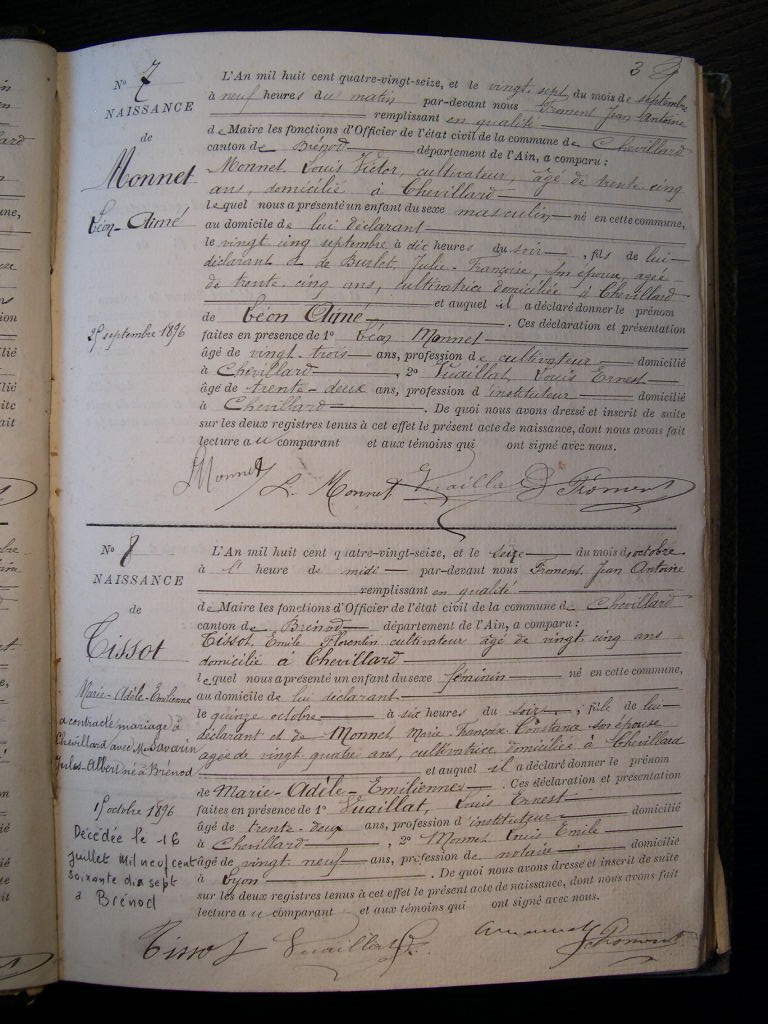 3
Nº 7
NAISSANCE
de
Monnet
Léon-Aimé
25 septembre 1896
L'An mil huit cent quatre-vingt-seize, et le vingt-sept du mois de septembre
à neuf heures du matin par-devant nous Froment Jean Antoine
remplissant en qualité
de Maire les fonctions d'Officier de l'état civil de la commune de Chevillard
canton de Brénod département de l'Ain, a comparu :
Monnet, Louis Victor, cultivateur, âgé de trente cinq
ans, domicilié à Chevillard
lequel nous a présenté un enfant du sexe masculin né en cette commune,
au domicile de lui déclarant
le vingt cinq septembre à dix heures du soir, fils de lui
déclarant et de Burlet, Julie-Françoise, son épouse, agée
de trente-cinq ans, cultivatrice domiciliée à Chevillard
et auquel il a déclaré donner le prénom
de Léon Aimé. Ces déclaration et présentation
faites en présence de 1º Léon Monnet
âgé de vingt-trois ans, profession de cultivateur domicilié
à Chevillard, 2º Vuaillat, Louis Ernest
âgé de trente-deux ans, profession d'instituteur domicilié
à Chevillard. De quoi nous avons dressé et inscrit de suite
sur les deux registres tenus à cet effet le présent acte de naissance, dont nous avons fait
lecture au comparant et aux témoins qui ont signé avec nous.
Monnet L. Monnet Vuaillat Froment
Nº 8
NAISSANCE
de
Tissot
Marie-Adèle-Emilienne
a contracté mariage à
Chevillard avec M. Savarin
Jules-Albert né à Brénod
15 octobre 1896
Décédée le 16
juillet mil neuf cent
soixante dix sept
à Brénod
L'An mil huit cent quatre-vingt-seize, et le seize du mois d'octobre
à l'heure de midi par-devant nous Froment Jean Antoine
remplissant en qualité
de Maire les fonctions d'Officier de l'état civil de la commune de Chevillard
canton de Brénod département de l'Ain, a comparu :
Tissot, Emile Florentin cultivateur âgé de vingt cinq ans
domicilié à Chevillard
lequel nous a présenté un enfant du sexe féminin né en cette commune,
au domicile de lui déclarant
le quinze octobre à six heures du soir, fille de lui
déclarant et de Monnet, Marie Françoise Constance son épouse
agée de vingt quatre ans, cultivatrice domiciliée à Chevillard
et auquel il a déclaré donner le prénom
de Marie-Adèle-Emilienne. Ces déclaration et présentation
faites en présence de 1º Vuaillat, Louis Ernest
âgé de trente-deux ans, profession d'instituteur domicilié
à Chevillard, 2º Monnet Louis Emile
âgé de vingt neuf ans, profession de notaire domicilié
à Lyon. De quoi nous avons dressé et inscrit de suite
sur les deux registres tenus à cet effet le présent acte de naissance, dont nous avons fait
lecture au comparant et aux témoins qui ont signé avec nous.
Tissot Vuaillat Froment